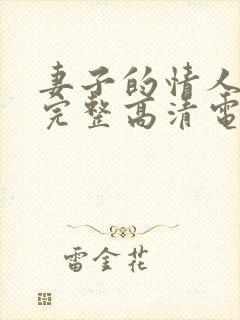 妻子的情人
完整高清電
雷金花